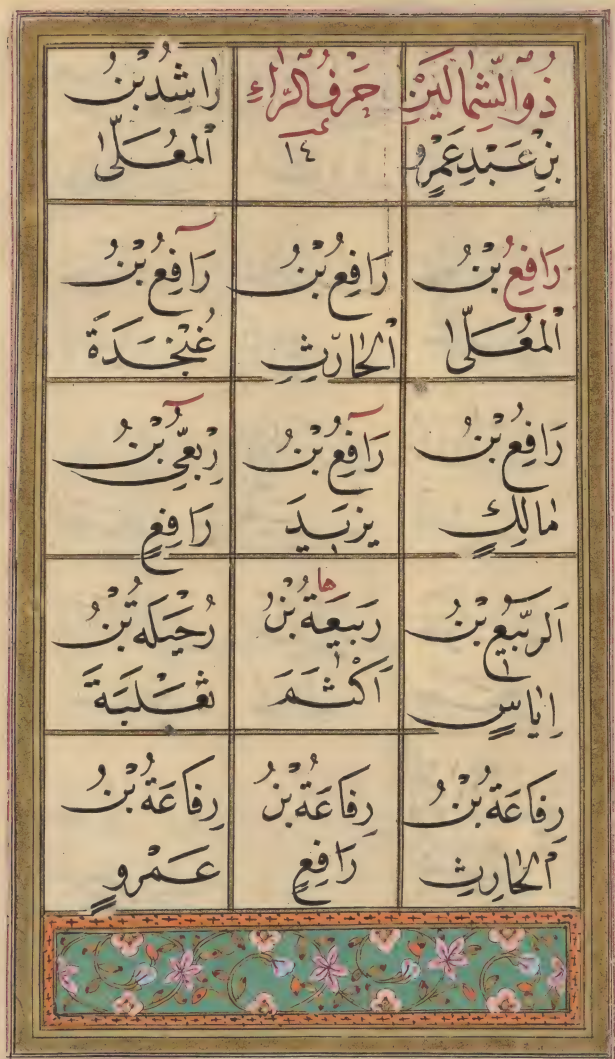 ذُوالشِّمَالَيْنِ
بْنِ عَبْدِعَمْرٍو
حَرْفُ الرَّاءِ
١٤
رَاشِدُ بْنُ
الْمُعَلَّىٰ
رَافِعُ بْنُ
الْمُعَلَّىٰ
رَافِعُ بْنُ
الْحَارِثِ
رَافِعُ بْنُ
عُنْجُدَةَ
رَافِعُ بْنُ
مَالِكٍ
رَافِعُ بْنُ
يَزِيدَ
رِبْعِيُّ بْنُ
رَافِعٍ
اَلرَّبِيعُ بْنُ
اِيَاسٍ
ها
رَبِيعَةُ بْنُ
اَكْثَمَ
رُحَيْلَه بْنُ
ثَعْلَبَةَ
رِفَاعَةُ بْنُ
الْحَارِثِ
رِفَاعَةُ بْنُ
رَافِعٍ
رِفَاعَةُ بْنُ
عَمْرٍو